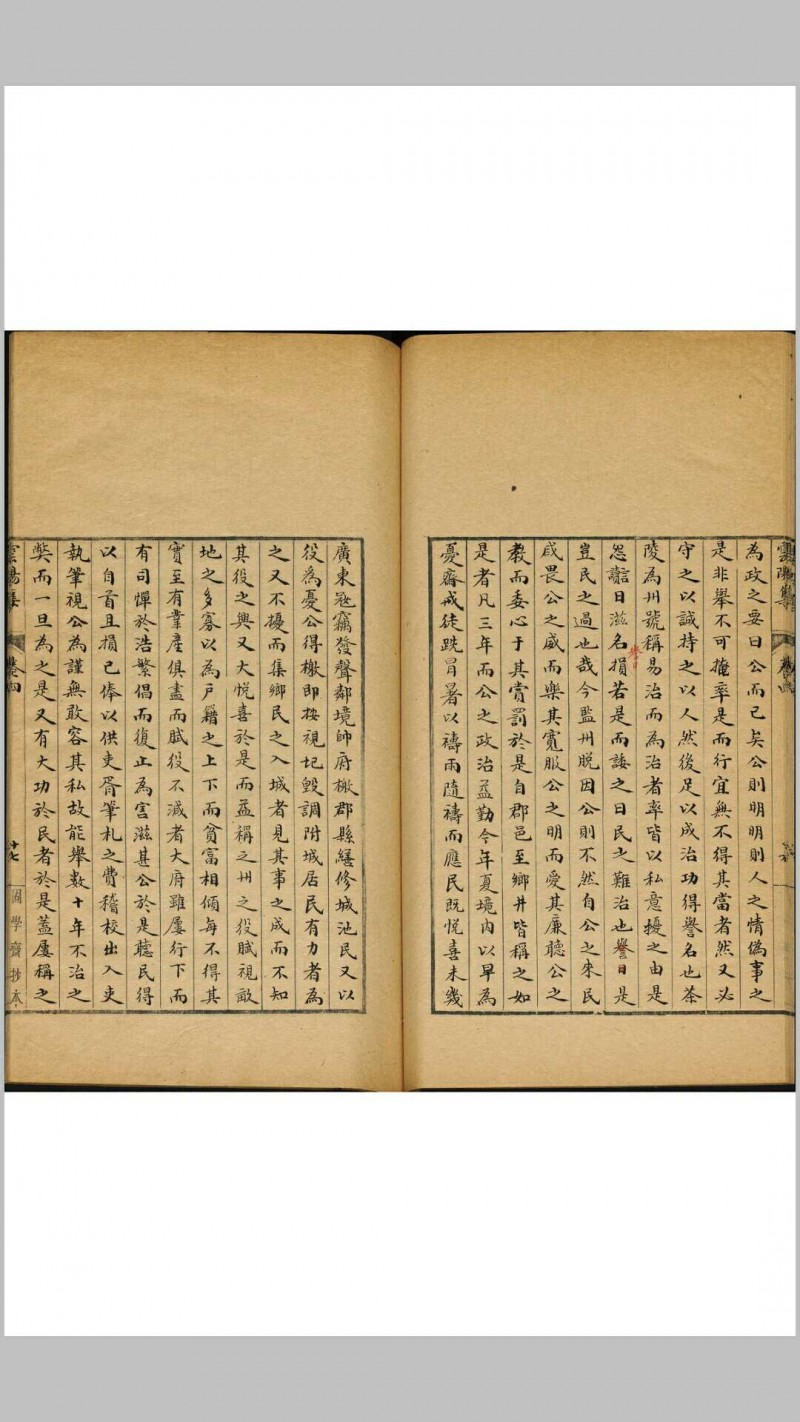 雲陽集
卷四
為政之要曰公而已矣公則明明則人之情偽事之
是非舉不可掩率是而行宜無不得其當者然又必
守之以誠持之以人然後足以成治功得譽名也茶
陵為州號稱易治而為治者率皆以私意擾之由是
怨讟日滋名損若是而諉之曰民之難治也譽日是
豈民之過也哉今監州脱因公則不然自公之來民
咸畏公之威而樂其寬服公之明而愛其廉聽公之
教而委心于其賞罰於是自郡邑至鄉井皆稱之如
是者凡三年而公之政治益勤今年夏境内以旱為
憂齋戒徒跣冒暑以禱雨隨禱而應民既悦喜未幾
廣東寇竊發聲鄰境帥府檄郡縣繕修城池民又以
役為憂公得檄即按視圮毁調附城居民有力者為
之又不擾而集鄉民之入城者見其事之成而不知
其役之興又大悦喜於是而益稱之州之役賦視畝
地之多寡以為戶籍之上下而貧富相傾每不得其
實至有業產俱盡而賦役不減者大府雖屢行下而
有司憚於浩繁倡而復止為害滋甚公於是聽民得
以自首且損己俸以供吏胥筆札之費稽校出入吏
執筆視公為謹無敢容其私故能舉數十年不治之
獘而一旦為之是又有大功於民者於是蓋屢稱之
雲陽集
卷四
十七
困學齋抄本